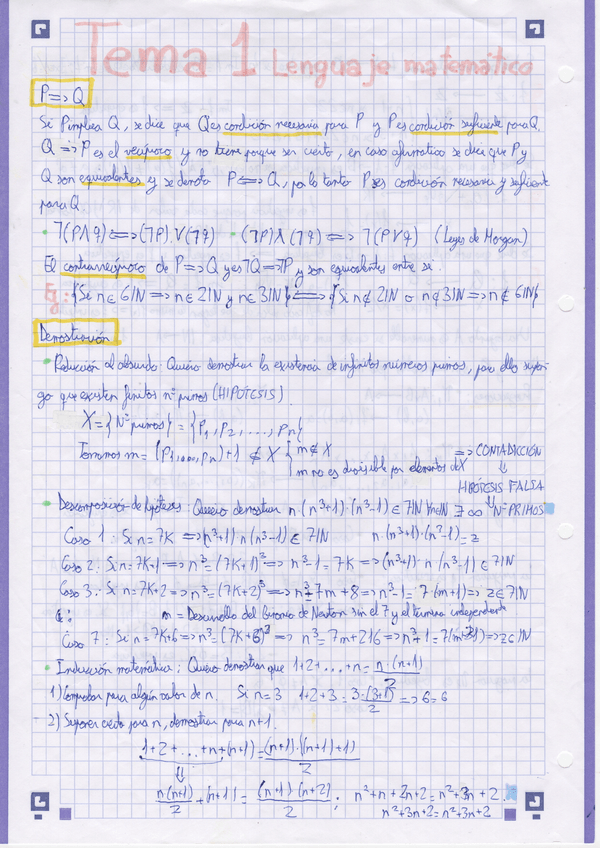 Tema 1 Lenguaje matemático
P => Q
Si P implica Q, se dice que Q es condición necesaria para P y P es condición suficiente para Q.
Q => P es el recíproco y no tiene porque ser cierto, en caso afirmativo se dice que P y
Q son equivalentes y se denota P <=> Q, por lo tanto P es condición necesaria y suficiente
para Q.
• ¬(P∧q) <=> (¬P)∨(¬q) • (¬P)∧(¬q) <=> ¬(P∨q) (Leyes de Morgan)
El contrarrecíproco de P => Q y es ¬Q => ¬P y son equivalentes entre si.
Ej: {Si n ∈ 6ℕ => n ∈ 2ℕ y n ∈ 3ℕ} <=> {Si n ∉ 2ℕ o n ∉ 3ℕ => n ∉ 6ℕ}
Demostración
• Reducción al absurdo: Quiero demostrar la existencia de infinitos números primos, para ello supon-
go que existen finitos nº primos (HIPÓTESIS)
X = {Nº primos} = {P₁, P₂, ..., Pn}
Tomamos m = (P₁, ..., Pn)+1 ∉ X { m ∉ X
m no es divisible por elementos de X
=> CONTADICCIÓN
⇓
HIPÓTESIS FALSA
⇓
∃ ∞ Nº PRIMOS
• Descomposición de hipótesis: Quiero demostrar n·(n³+1)·(n³-1) ∈ 7ℕ ∀n∈ℕ
Caso 1: Si n=7K => (n³+1) n (n³-1) ∈ 7ℕ n·(n³+1)·(n³-1) = z
Caso 2: Si n=7K+1 => n³=(7K+1)³ => n³-1=7K => (n³+1)·n (n³-1) ∈ 7ℕ
Caso 3: Si n=7K+2 => n³=(7K+2)³ => n³=7m+8 => n³-1=7·(m+1) => z∈7ℕ
m = Desarrollo del Binomio de Newton sin el 7 y el termino independente
Caso 7: Si n=7K+6 => n³=(7K+6)³ => n³=7m+216 => n³+1=7(m+31) => z∈ℕ
• Inducción matemática: Quiero demostrar que 1+2+...+n = n·(n+1)/2
1) Comprobar para algún valor de n. Si n=3 1+2+3 = 3·(3+1)/2 => 6=6
2) Suponer cierto para n, demostrar para n+1.
1+2+...+n+(n+1) = (n+1)·((n+1)+1)/2
⇓
n(n+1)/2 + (n+1) = (n+1)·(n+2)/2 ; n²+n+2n+2 = n²+3n+2.
n²+3n+2 = n²+3n+2